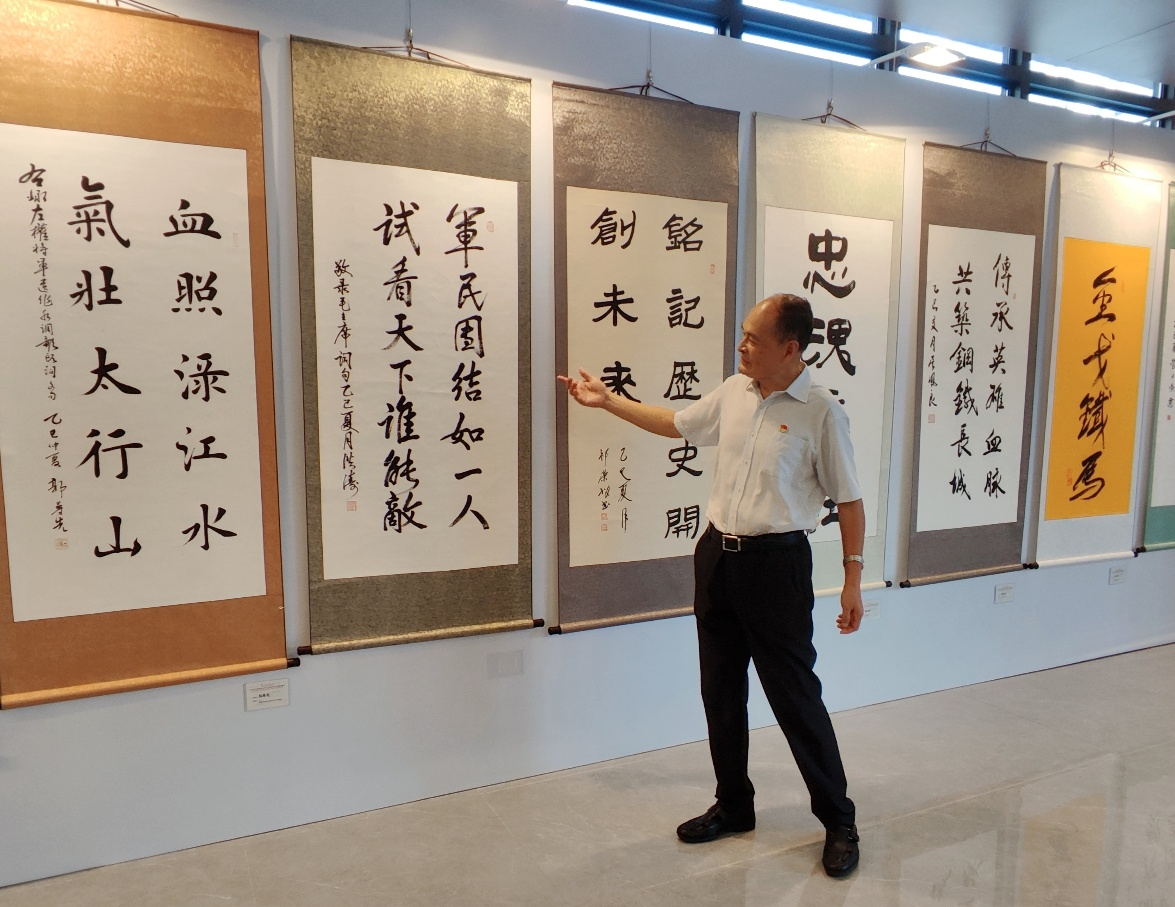 血照渌江水
氣壯太行山
左權將軍
乙巳仲夏
軍民团结如一人
试看天下谁能敵
敬录毛主席词句乙巳夏月洪涛
銘記歷史開
創未来
乙巳夏月
忠魂
傳承英雄血脉
共築鋼鐵長城
乙巳夏月
金戈鐵馬